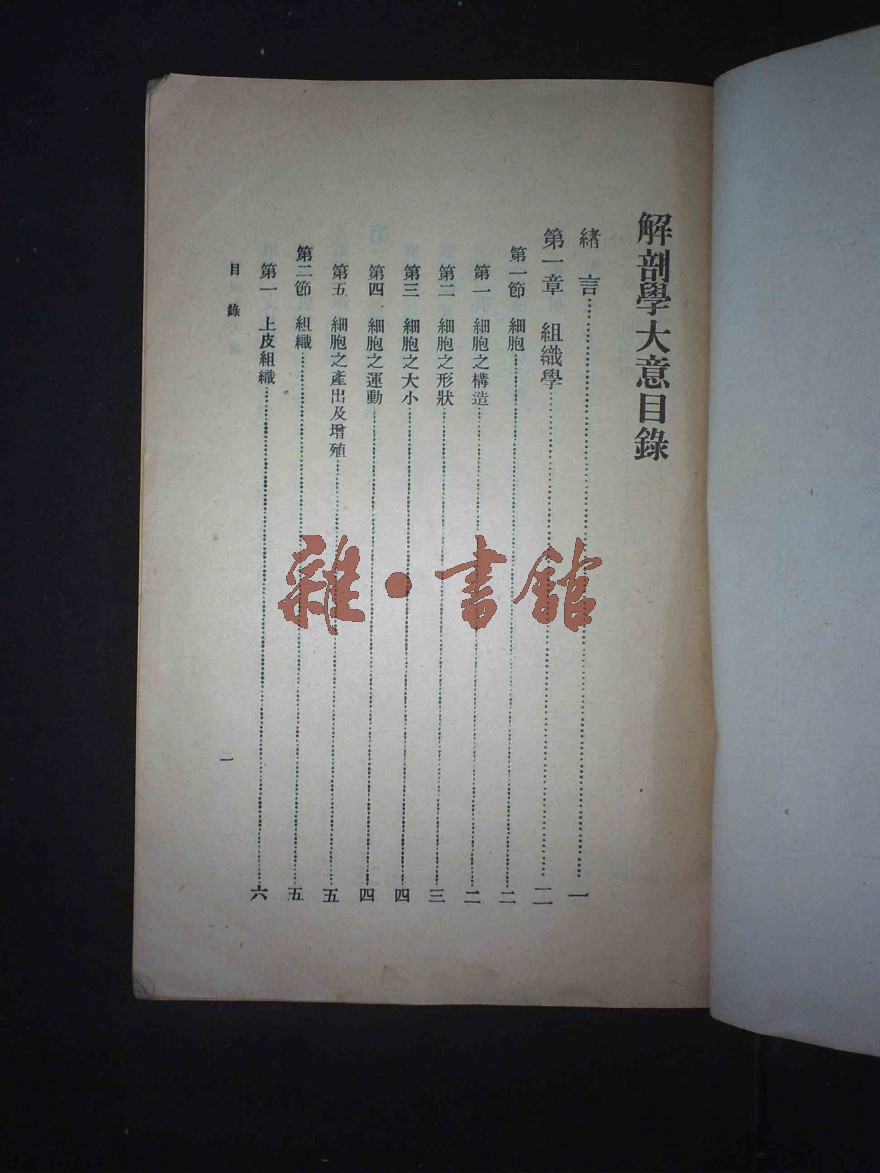 解剖學大意目錄
緒言……一
第一章 組織學……二
第一節 細胞……二
第一 細胞之構造……二
第二 細胞之形狀……三
第三 細胞之大小……四
第四 細胞之運動……四
第五 細胞之產出及增殖……五
第二節 組織……五
第一 上皮組織……六
目錄 一
雜·書館